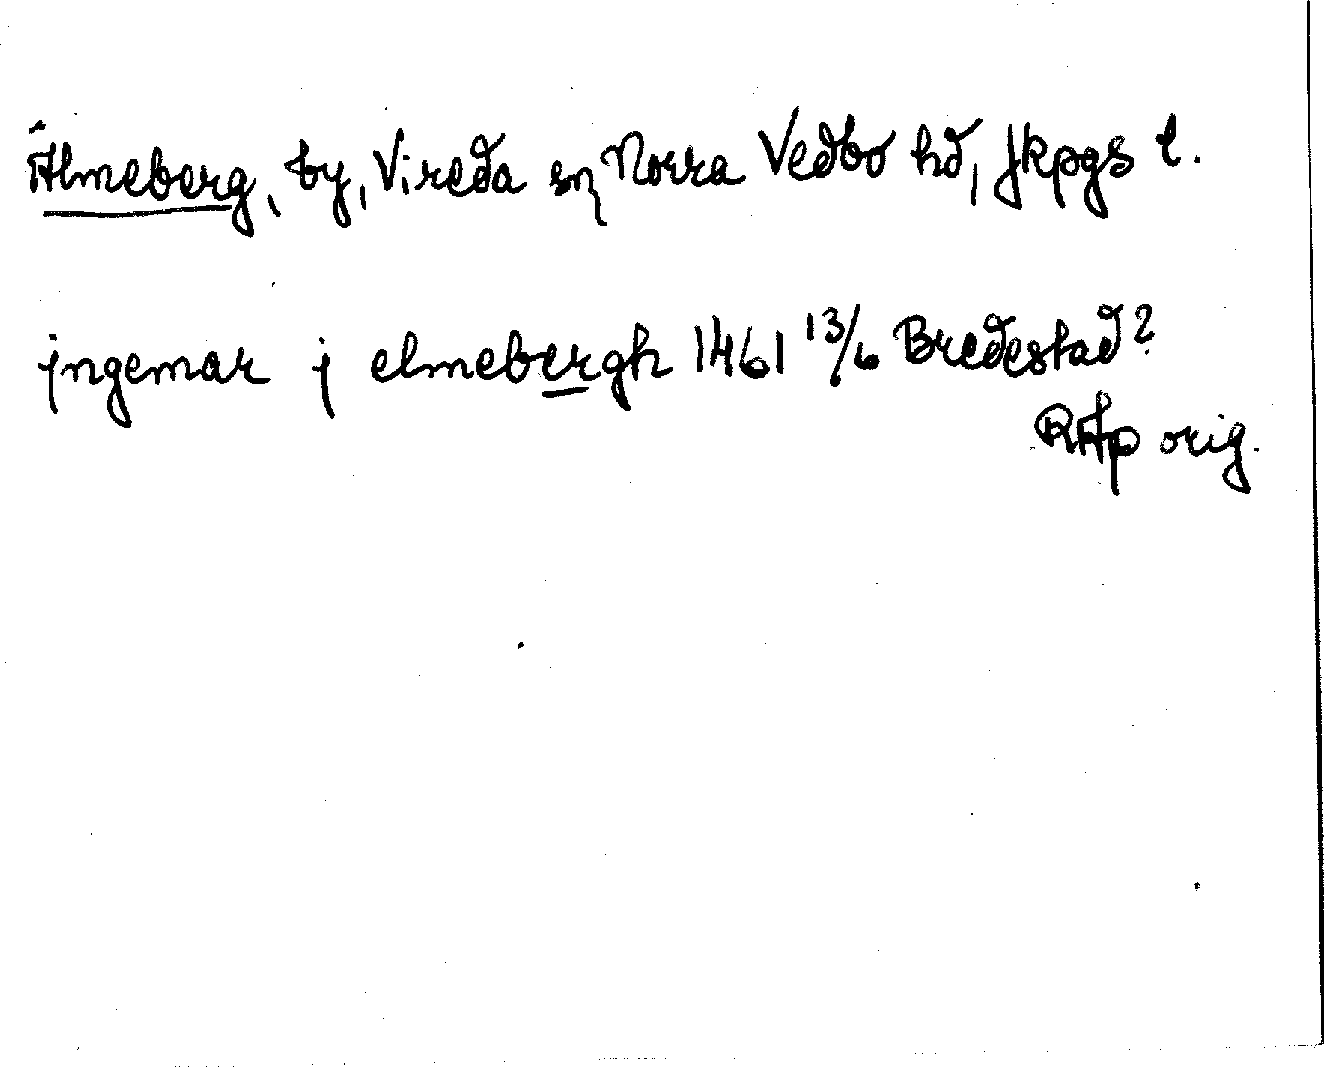 Älmeberg, by, Vireda sn, Norra Vedbo hd, Jkpgs l.
jngemar j elmebergh 1461 13/6 Bredestad?
RAp orig.